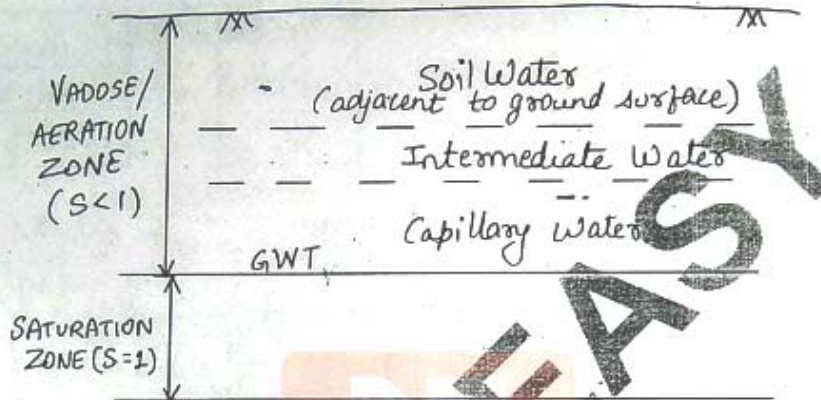 VADOSE/
AERATION
ZONE
(S<1)
Soil Water
(adjacent to ground surface)
Intermediate Water
Capillary Water
GWT
SATURATION
ZONE (S=1)
EASY